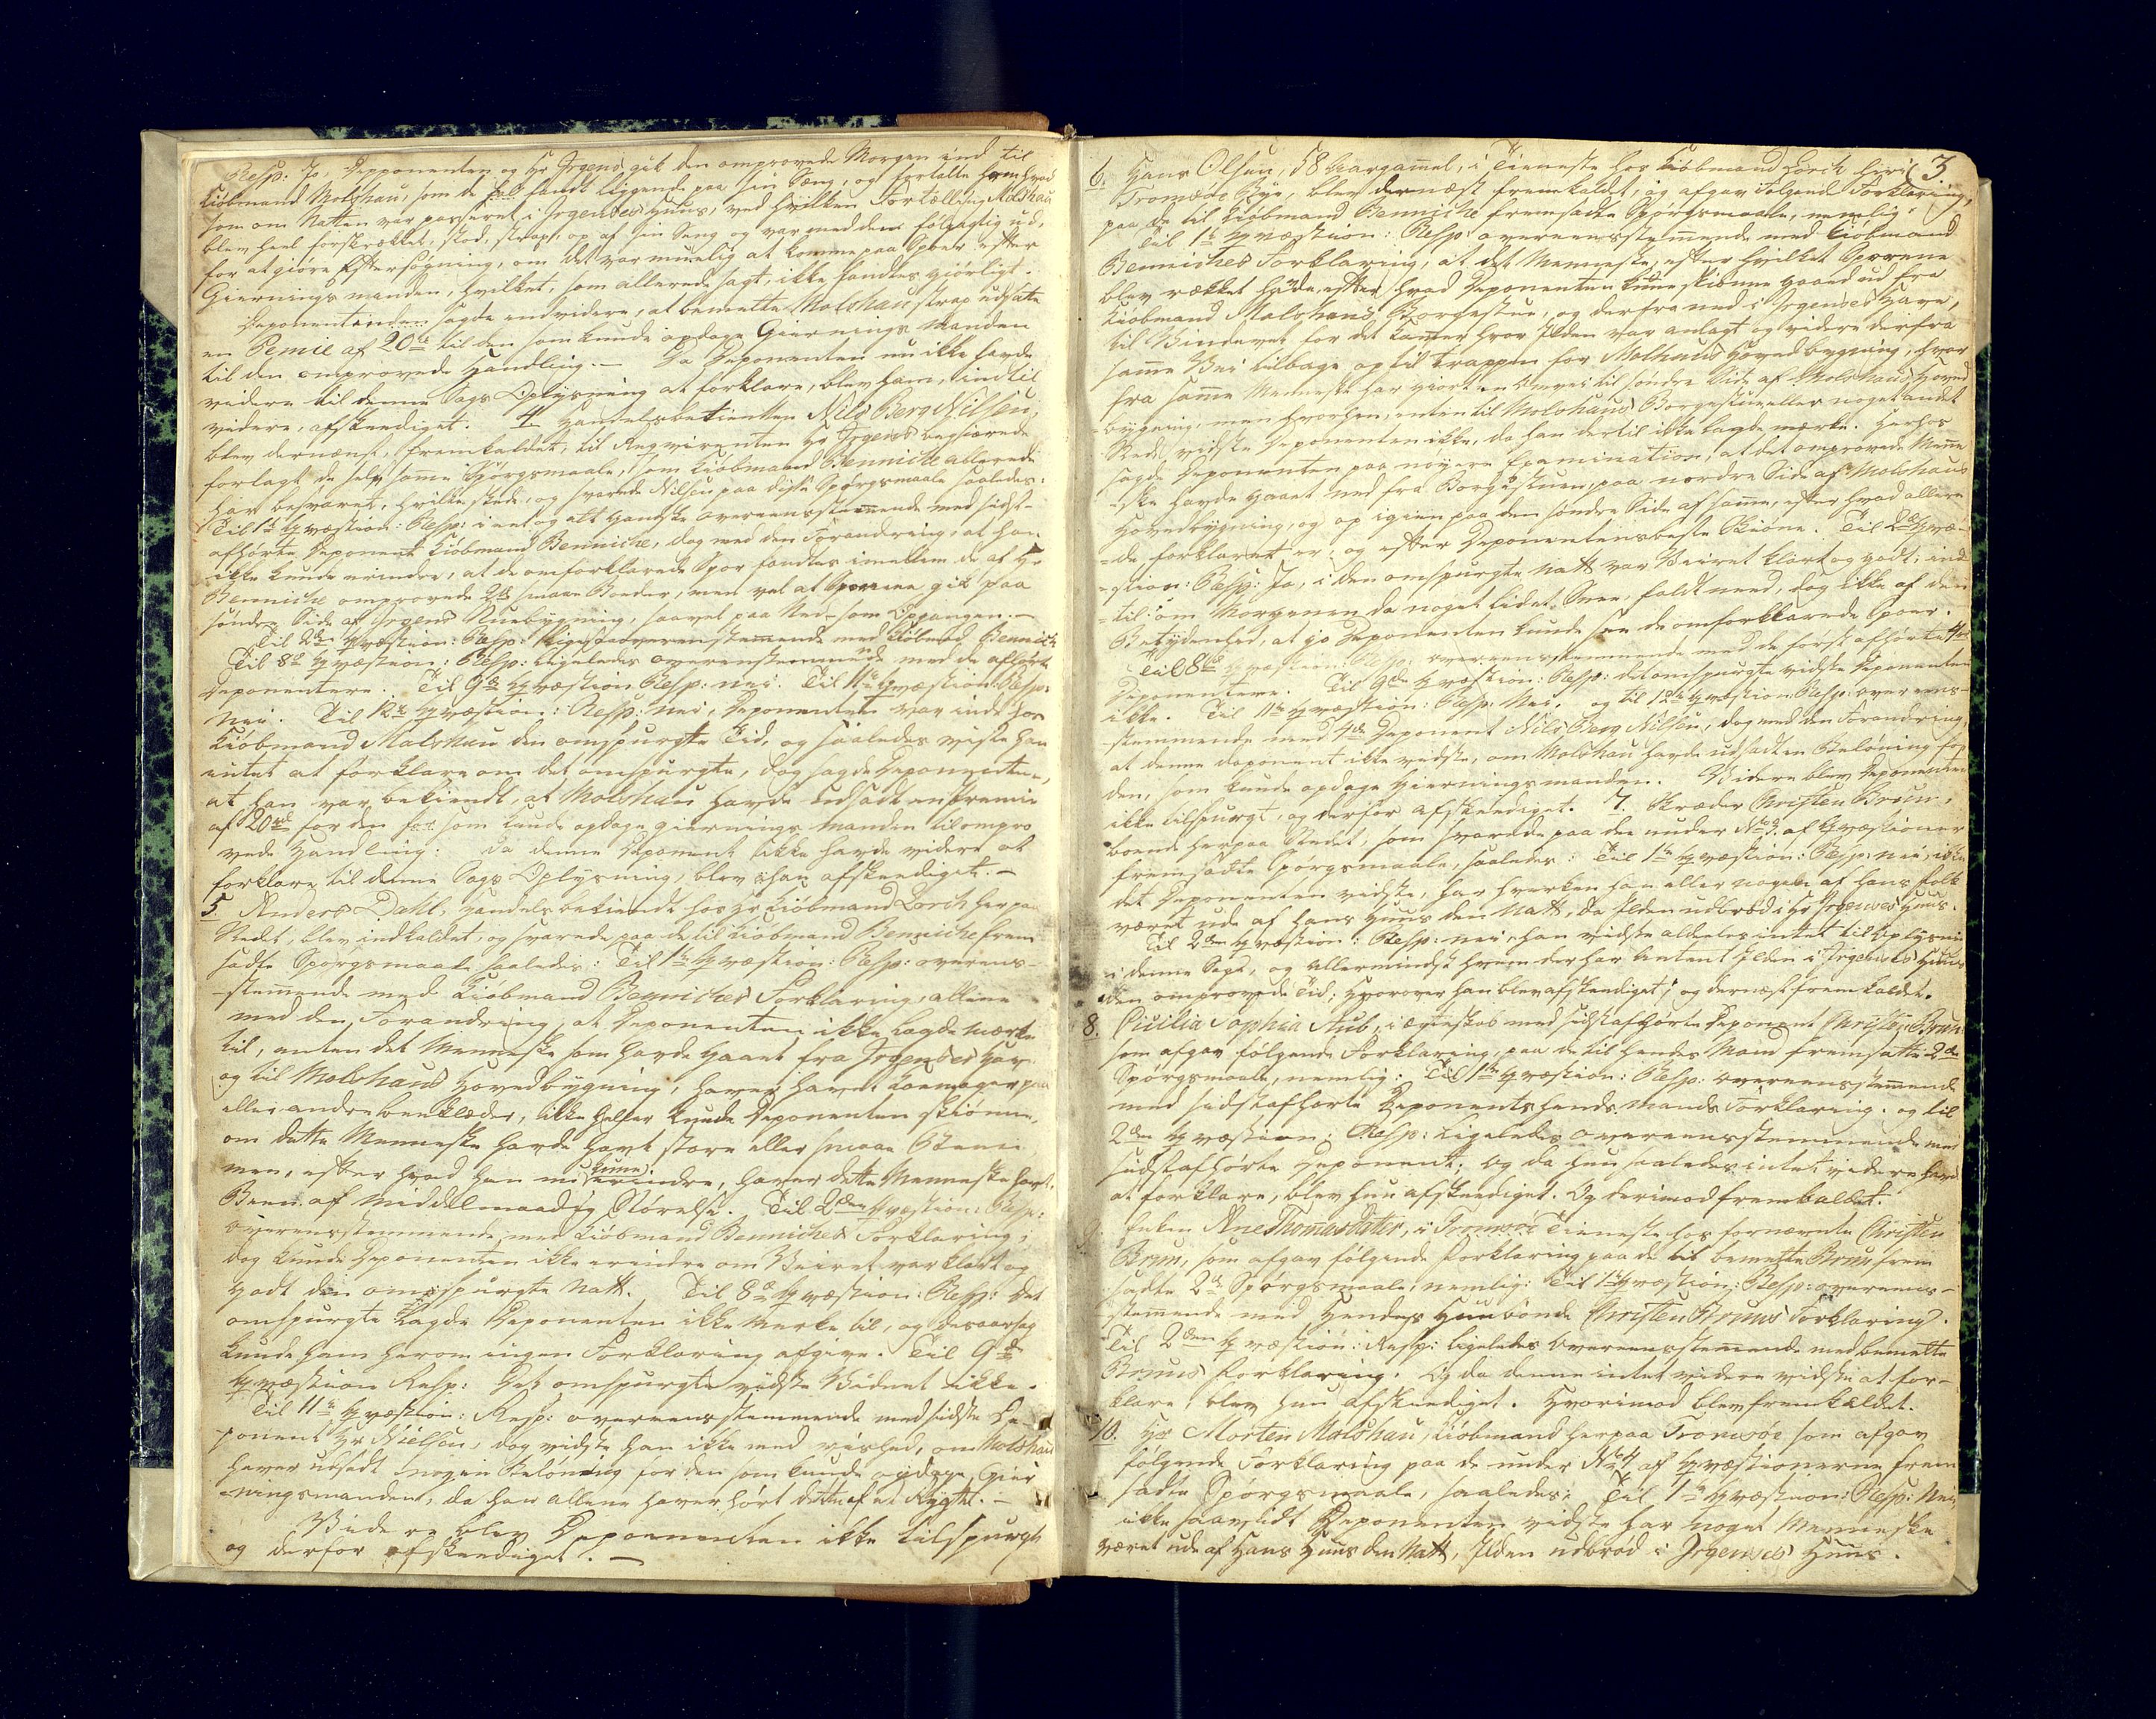 Resp: Ja, Depponenten og Hr Jrgens gik den omprovede Morgen ind til
Kiöbmand Molshau, som de fandt liggende paa sin Sæng, og fortalte ham hvad
som om Natten var passeret i Jrgenses Huus, ved hvilken Fortælling Molshau
blev heel forskrækket, stod, strax, op af sin Seng og var med dem følgagtig ud,
for at giöre Eftersøgning, om det var muelig at komme paa Spoer efter
Giernings manden, hvilket, som allerede sagt, ikke fandtes giørligt.
Deponenten sagde endvidere, at bemelte Molshau strax udsatte
en Pemie af 20 til den som kunde opdage Giernings Manden
til den omprovede Handling. – Da Deponenten nu ikke havde
videre til denne Sags Oplysning at forklare, blev ham, indtil
videre, afskeediget. 4 Handelsbetienten Nils Berg Nilsen,
blev dernæst, fremkaldet, til Reqvirenten Hr Jrgens begiærede
forlagt de selv samme Spørgsmaale, som Kiöbmand Benniche allerede
har besvaret, hvilket skede, og svarede Nilsen paa disse Spørgsmaale saaledes:
Til 1te Qvæstion: Resp: i eet og alt gandske overeensstemmende med sidst-
afhørte Deponent Kiöbmand Benniche, dog med den Forandring, at han
ikke kunde erindre, at de omforklarede Spor fandtes imellem de af Hr
Benniche omprovede 2de smaae Boeder, men vel at Sporene gik paa
søndre Side af Jrgens Nuebygning, saavel paa Ned- som Opgangen. –
Til 2den Qvæstion: Resp: ligesaa overeenstemmende med Kiöbmd Benniche
Til 8de Qvæstion: Resp: Ligeledes overenstemmende med de afhørte
Deponentere. Til 9de Qvæstion Resp: nei. Til 11te Qvæstion: Resp:
Nei. Til 12te Qvæstion: Resp: Nei, Deponenten var inde hos
Kiöbmand Molshau den omspurgte Tid, og saaledes viste han
intet at forklare om det omspurgte, dog sagde Deponenten,
at han var bekiendt, at Molshau havde udsadt en Premie
af 20 for den som kunde opdage giernings Manden til ompro
vede Handling. Da denne Deponent ikke havde videre at
forklare til denne Sags Oplysning, blev han afskeediget. –
5. Anders Dahl, Handelsbetiendt hos Hr Kiöbmand Lorch her paa
Stedet, blev indkaldet, og svarede paa de til Kiöbmand Benniche frem
sadte Spørgsmaale saaledes: Til 1te Qvæstion: Resp: overeens-
-stemmende med Kiöbmand Benniches Forklaring, allene
med den Forandring, at Deponenten ikke lagde mærke
til, enten det Menneske som havde gaaet fra Jrgenses Hav-
og til Molshaus Hovedbygning, haver havt Komager paa
eller andre beenklæder, ikke heller kunde Deponenten skiønne,
om dette Menneske havde havt store eller smaae Been
men, efter hvad han nu kune erindre, haver dette Menneske havt
Been af middelmaadig Størelse. Til 2den Qvæstion: Resp:
overensstemmende med Kiöbmand Benniches Forklaring,
dog kunde Deponenten ikke erindre om Veiret var klart og
godt den omspurgte Natt. Til 8de Qvæstion: Resp: Det
omspurgte lagde Deponenten ikke Merke til, og desaarsag
kunde ham herom ingen Forklaring afgive. Til 9de
Qvæstion Resp: Det omspurgte vidste Vidnet ikke.
Til 11te Qvæstion: Resp: overeensstemmende med sidste De-
ponent Hr Nielsen, dog vidste han ikke med vished, om Molshau
haver udsadt nogen Beløning for den som kunde opdage Gier
-ningsmanden, da han allene haver hørt dette af et Rygte. –
Videre blev Deponenten ikke tilspurgt
og derfor afskeediget. –
3
6. Hans Olsen, 58 Aargammel, i Tieneste hos Kiöbmand Lorch hir i
Tromsøe Bye, blev dernæst fremkaldet, og afgav Følgende Forklaring,
paa de til Kiöbmand Benniche fremsadte Spørgsmaale, nemlig:
Til 1te Qvæstion: Resp: overeensstemmende med Kiöbmand
Benniches Forklaring, at det Menneske, efter hvilket Sporene
blev rækket havde, efter hvad Deponenten kune skiønne gaaed ud fra
Kiöbmand Molshaus Borgestue, og derfra ned i Jrgenses Have,
til Vinduet for det Kammer hvor Ilden var anlagt og videre derfra
samme Vei tilbage op til Trappen for Molshaus Hovedbygning, hvor
fra samme Menneske har giort en Omvei til søndre Side af Molshaus Hoved
bygning, men hvorhen, enten til Molshaus Borgestue eller noget andet
Sted, vidste Deponenten ikke, da han dertil ikke lagde mærke. Herhos
sagde Deponenten paa nöyere Examination, at det omprovede Menne
-ske havde gaaet ned fra Borgestuen, paa nordre Side af Molshaus
Hovedbygning, og op igien paa den søndre Side af samme, efter hvad allere
-de forklaret er, og efter Deponentens beste Skiöne. Til 2de Qvæ-
-stion: Resp: Ja, i den omspurgte Natt var Veiret klart og godt, ind
-til om Morgenen da noget lidet Snee, faldt need, dog ikke af den
Betydenhed, at jo Deponenten kunde see de omforklarede Spoer.
Til 8de Qvæstion: Resp: overeensstemmende med de først afhørte
Deponentere. Til 9de Qvæstion: Resp: det omspurgte vidste Deponenten
ikke. Til 11te Qvæstion: Resp: Nei, og til 12te Qvæstion Resp: overeens-
-stemmende med 4de Deponent Nils Berg Nilsen, dog med den Forandring,
at denne deponent ikke vidste, om Molshau havde udsadt en Beløning for
den, som kunde opdage Gierningsmanden. Videre blev Deponenten
ikke tilspurgt, og derfor afskeediget. 7. Skræder Christen Brun,
boende herpaa Stedet, som svarede paa de under No 3. af Qvæstioner
fremsadte Spørgsmaale, saaledes: Til 1te Qvæstion: Resp: nei, ikke
det Deponenten vidste, har hverken han eller nogen af hans folk
været ude af hans Huus den Natt, da Ilden udbrød i Hr Jrgenses Huus.
Til 2den Qvæstion: Resp: nei, han vidste aldeles intet til Oplysning
i denne Sag, og Allermindst hvem der har antent Ilden i Jrgenses Huus
den omprovede Tid; Hvorover han blev afskeediget, og dernæst fremkaldet.
8. Cicilia Sophia Aub, i ægteskab med sidstafhørte Deponent Christen Brun
som afgav følgende Forklaring, paa de til hendes Mand fremsatte 2de
Spørgsmaale, nemlig: Til 1te Qvæstion: Resp: overeensstemmende
med sidstafhørte Deponents hendes mands Forklaring. og til
2den Qvæstion: Resp: Ligeledes overeensstemmende med
sidstafhørte Deponent; og da hun saaledes intet videre havde
at forklare, blev hun afskeediget. Og derimod frembaldet.
9. Enken Ane Thomasdatter, i Tromsøe Tieneste hos fornævnte Christen
Brun, som afgav følgende Forklaring paa de til bemelte Brun frem
sadte 2de Spørgsmaale, nemlig: Til 1te Qvæstion: Resp: overeens-
stemmende med hendes Huusbonde Christen Bruns Forklaring.
Til 2den Qvæstion: Resp: ligeledes overeensstemmende med bemelte
Bruns Forklaring. Og da denne intet videre vidste at for-
klare, blev hun afskeediget. Hvorimod blev fremkaldet.
10. Hr Morten Molshau, Kiöbmand herpaa Tromsøe som afgav
følgende Forklaring paa de under No 4 af Qvæstionerne frem
sadte Spørgsmaale, saaledes: Til 1te Qvæstion: Resp: Nei
ikke saavidt Deponenten vidste har noget Menneske
været ude af Hans Huus den Natt, Ilden udbrød i Jrgenses Huus.